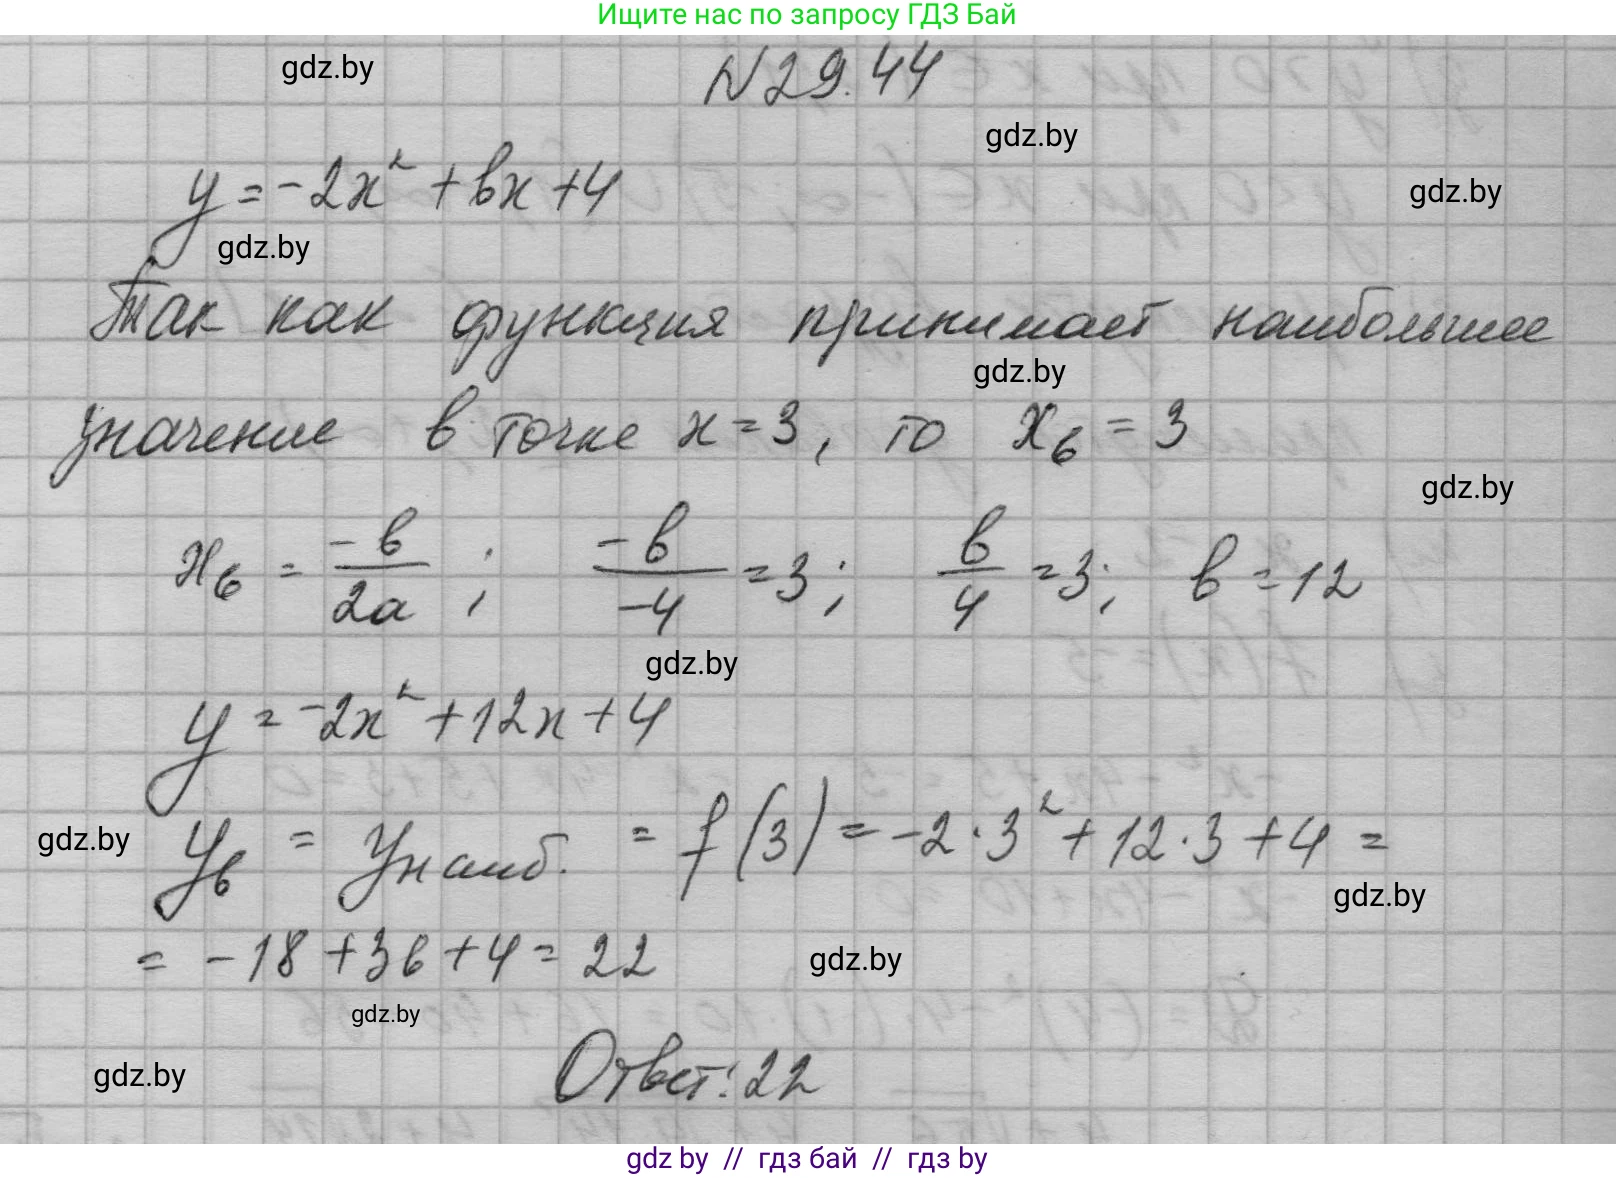 Ищите нас по запросу ГДЗ Бай
gdz.by
N 29.44
gdz.by
y = -2x² + bx + 4
gdz.by
gdz.by
Так как функция принимает наибольшее
gdz.by
значение в точке x = 3, то xв = 3
gdz.by
xв = -b/2a ; -b/-4 = 3; b/4 = 3; b = 12
gdz.by
y = -2x² + 12x + 4
gdz.by
yв = yнаиб. = f(3) = -2·3² + 12·3 + 4 =
gdz.by
= -18 + 36 + 4 = 22
gdz.by
gdz.by
Ответ: 22
gdz.by
gdz by // гдз бай // гдз by